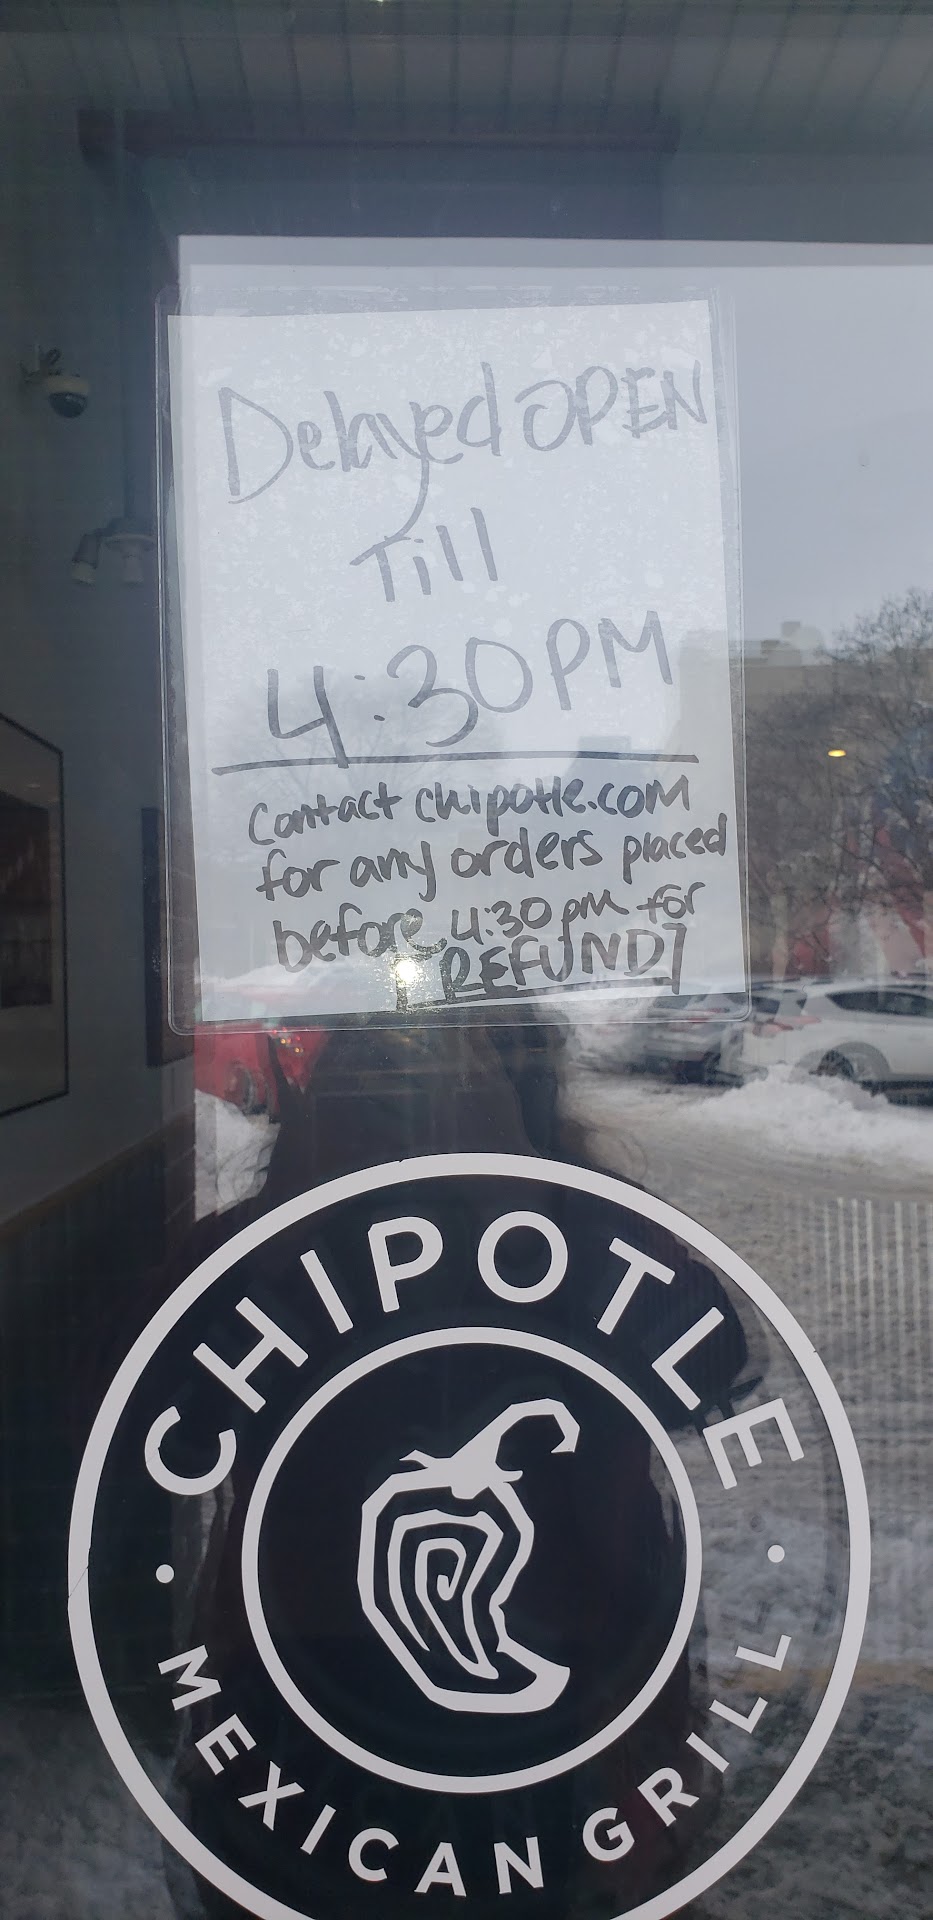 Delayed OPEN
Till
4:30PM
Contact chipotle.com
for any orders placed
before 4:30pm for
REFUND
CHIPOTLE
MEXICAN GRILL